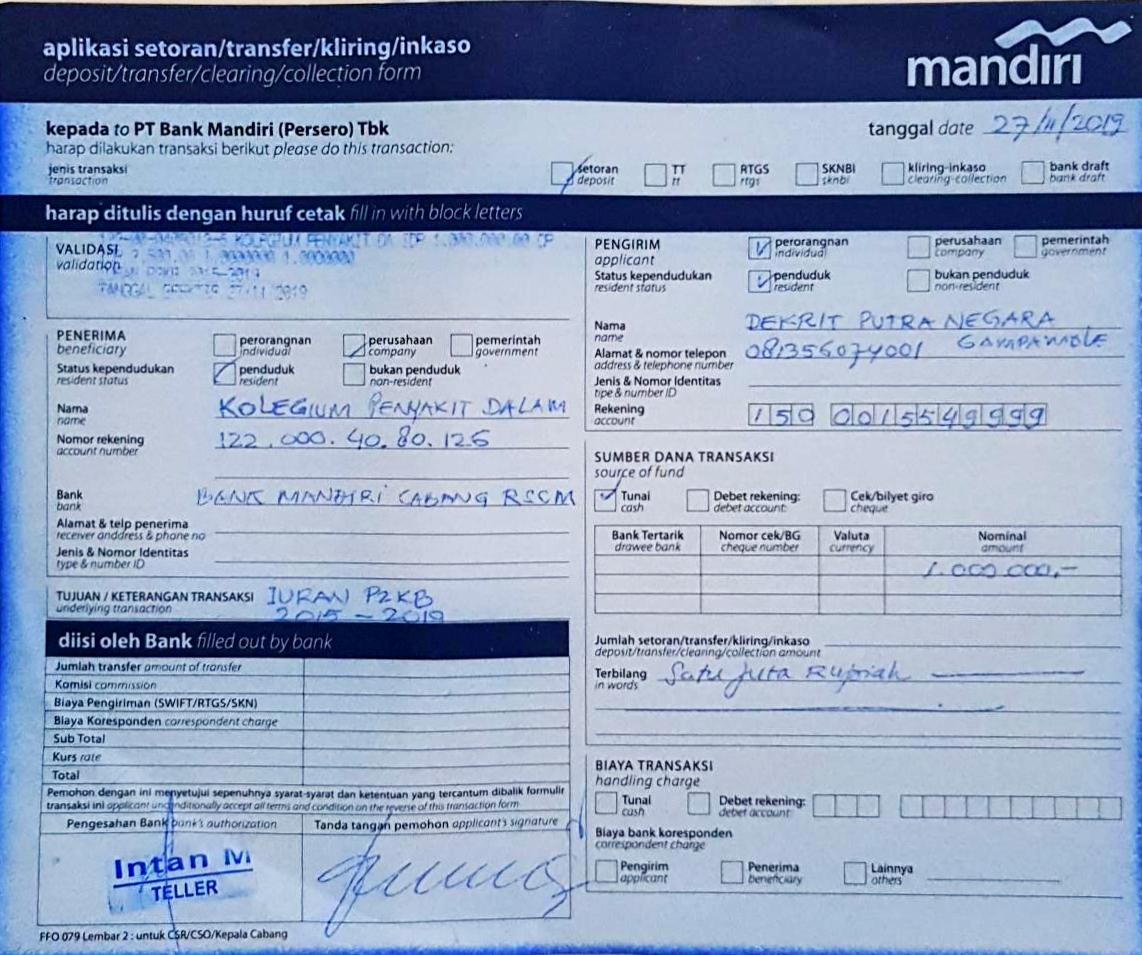 aplikasi setoran/transfer/kliring/inkaso
deposit/transfer/clearing/collection form
mandiri
kepada to PT Bank Mandiri (Persero) Tbk
tanggal date 27/11/2019
harap dilakukan transaksi berikut please do this transaction:
jenis transaksi
transaction
setoran
deposit
TT
tt
RTGS
rtgs
SKNBI
sknbi
kliring-inkaso
clearing-collection
bank draft
bank draft
harap ditulis dengan huruf cetak fill in with block letters
VALIDASI
validation
KOLEGIUM PENYAKIT DA IDR 1.000.000.00
2015-2019
TANGGAL 27-11-2019
PENERIMA
beneficiary
perorangnan
individual
perusahaan
company
pemerintah
government
Status kependudukan
resident status
penduduk
resident
bukan penduduk
non-resident
Nama
name
KOLEGIUM PENYAKIT DALAM
Nomor rekening
account number
122.000.40.80.126
Bank
bank
BANK MANDIRI CABANG RSCM
Alamat & telp penerima
receiver anddress & phone no
Jenis & Nomor Identitas
type & number ID
TUJUAN / KETERANGAN TRANSAKSI
underlying transaction
IURAN P2KB
2015 - 2019
diisi oleh Bank filled out by bank
Jumlah transfer amount of transfer
Komisi commission
Biaya Pengiriman (SWIFT/RTGS/SKN)
Biaya Koresponden correspondent charge
Sub Total
Kurs rate
Total
Pemohon dengan ini menyetujui sepenuhnya syarat-syarat dan ketentuan yang tercantum dibalik formulir
transaksi ini applicant unconditionally accept all terms and condition on the reverse of this transaction form
Pengesahan Bank bank's authorization
Tanda tangan pemohon applicant's signature
Intan M
TELLER
FFO 079 Lembar 2 : untuk CSR/CSO/Kepala Cabang
PENGIRIM
applicant
perorangnan
individual
perusahaan
company
pemerintah
government
Status kependudukan
resident status
penduduk
resident
bukan penduduk
non-resident
Nama
name
DEKRIT PUTRA NEGARA
Alamat & nomor telepon
address & telephone number
081356074001
Jenis & Nomor Identitas
tipe & number ID
Rekening
account
150 0015549999
SUMBER DANA TRANSAKSI
source of fund
Tunai
cash
Debet rekening:
debet account:
Cek/bilyet giro
cheque
Bank Tertarik
drawee bank
Nomor cek/BG
cheque number
Valuta
currency
Nominal
amount
1.000.000,-
Jumlah setoran/transfer/kliring/inkaso
deposit/transfer/clearing/collection amount
Terbilang
in words
Satu Juta Rupiah
BIAYA TRANSAKSI
handling charge
Tunai
cash
Debet rekening:
debet account:
Biaya bank koresponden
correspondent charge
Pengirim
applicant
Penerima
beneficiary
Lainnya
others